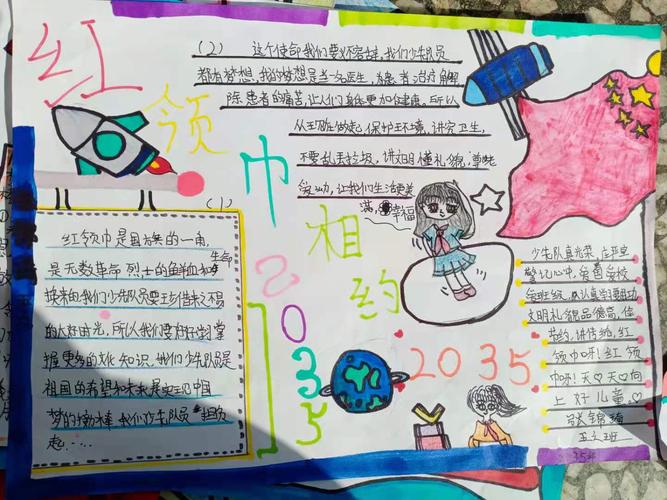 红领巾相约
2035
2035
(1)
红领巾是国旗的一角,
是无数革命烈士的鲜血和生命
换来的我们少先队员要珍惜来之不易
的大好时光,所以我们要好好掌
握更多的文化知识,我们少先队员是
祖国的希望和未来是实现中国
梦的接棒我们少先队员担负
起……
(2) 这个使命我们要义不容辞,我们少先队员
都有梦想,我的梦想是当一名医生,为患者治疗解
除患者的痛苦,让人们身体更加健康,所以
从现在做起,保护环境,讲究卫生,
不要乱丢垃圾,讲文明懂礼貌,尊老
爱幼,让我们生活更美
满,幸福
少先队真光荣,
心中,
认真学习
文明礼貌品德高,
红
领巾呀!红领
巾呀!天天向
上好儿童。
张锦
五班